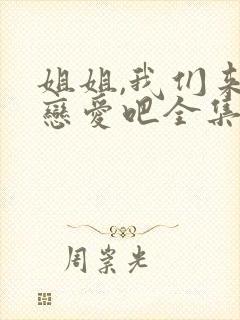 姐姐,我们来
戀爱吧全集
周崇光